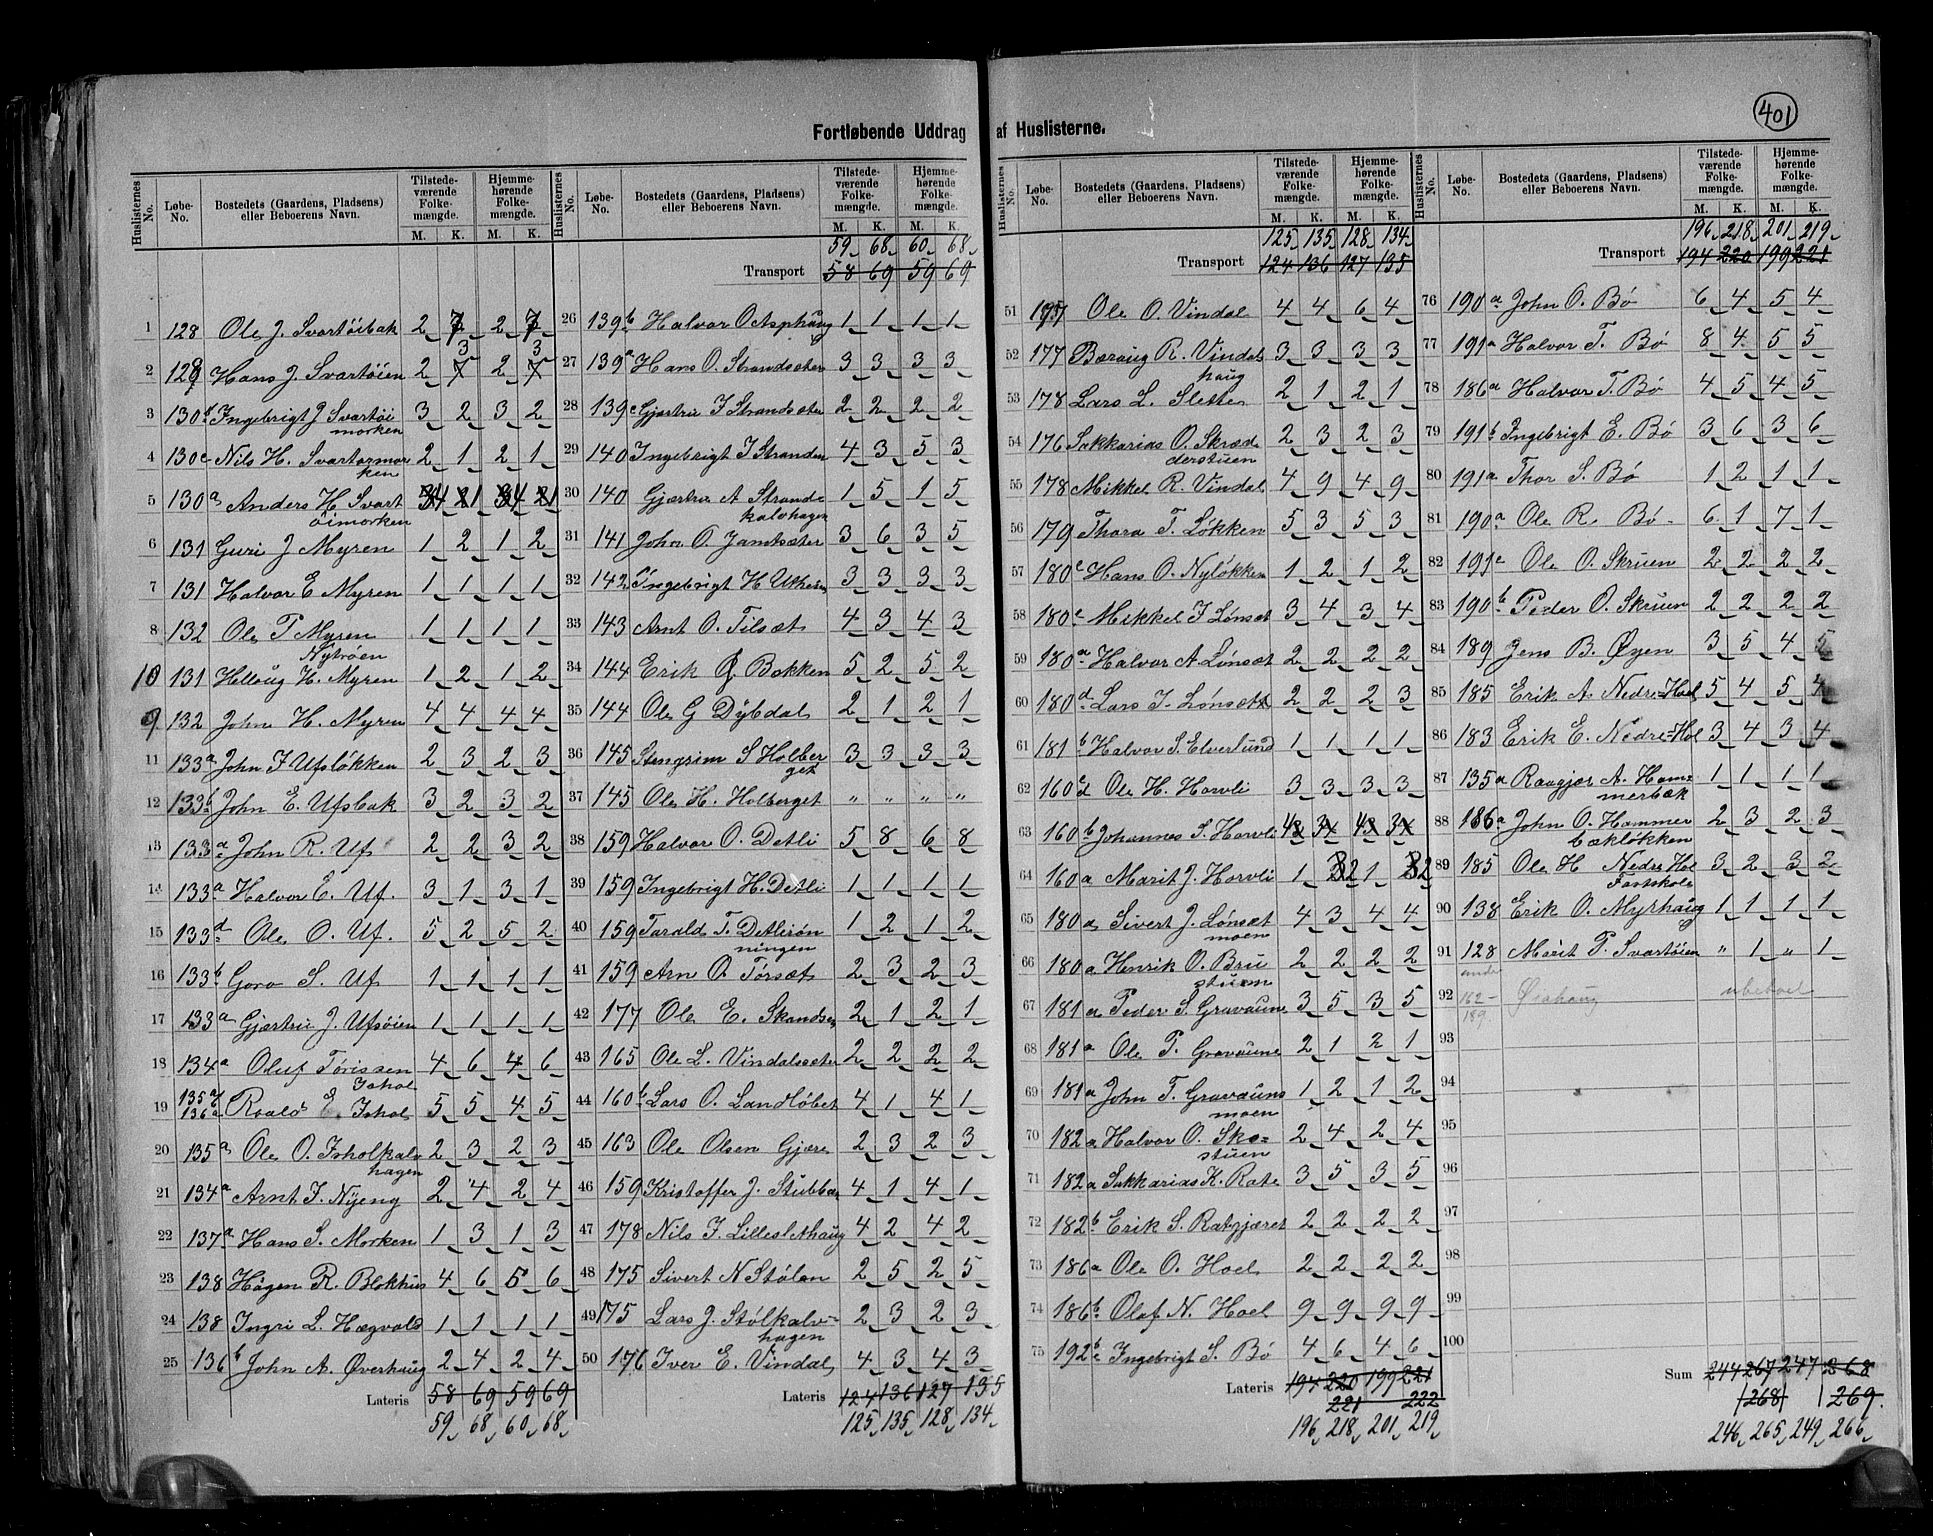 401
Fortløbende Uddrag af Huslisterne.
Huslisternes No. Løbe-No. Bostedets (Gaardens, Pladsens) eller Beboerens Navn. Tilstedeværende Folkemængde. M. K. Hjemmehørende Folkemængde. M. K.
1 128 Ole J. Svartöibak 2 7 2 7
2 129 Hans J. Svartöien 2 3 2 3
3 130 Ingebrigt J Svartöimorken 3 2 3 2
4 130c Nils H. Svartormorken 2 1 2 1
5 130a Anders H. Svartöimorken 4 1 4 1
6 131 Guri J Myren 1 2 1 2
7 131 Halvor E Myren 1 1 1 1
8 132 Ole P Myren Nytröen 1 1 1 1
10 131 Hellaug H. Myren 1 2 1 2
9 132 John H. Myren 4 4 4 4
11 133a John J Ufslökken 2 3 2 3
12 133b John E. Ufsbak 3 2 3 2
13 133a John R. Uf 2 2 3 2
14 133a Halvor E. Uf. 3 1 3 1
15 133d Ole O. Uf. 5 2 5 2
16 133b Goro S. Uf 1 1 1 1
17 133a Gjertru J. Ufsöien 1 1 1 1
18 134a Oluf Törissen Ishol 4 6 4 6
19 135a 136a Roald E. Ishol 5 5 4 5
20 135a Ole O. Isholkalvhagen 2 3 2 3
21 134a Arnt J. Nyeng 2 4 2 4
22 137a Hans S. Morken 1 3 1 3
23 138 Hågen R. Blokhus 4 6 5 6
24 138 Ingri L. Hægvold 1 1 1 1
25 136b John A. Øverhaug 2 4 2 4
Lateris 58 69 59 69
59 68 60 68
Huslisternes No. Løbe-No. Bostedets (Gaardens, Pladsens) eller Beboerens Navn. Tilstedeværende Folkemængde. M. K. Hjemmehørende Folkemængde. M. K.
59 68 60 68
Transport 58 69 59 69
26 139b Halvor O Asphaug 1 1 1 1
27 139a Hans O. Strandsæter 3 3 3 3
28 139c Gjertru J Strandsæter 2 2 2 2
29 140 Ingebrigt J Stranden 4 3 5 3
30 140 Gjertru A Strandkalvhagen 1 5 1 5
31 141 John O. Jamtsæter 3 6 3 5
32 142 Ingebrigt H 3 3 3 3
33 143 Arnt O. Tilsæt 4 3 4 3
34 144 Erik Bakken 5 2 5 2
35 144 Ole G Dybdal 2 1 2 1
36 145 Stengrim S Holberget 3 3 3 3
37 145 Ole H. Holberget " " " "
38 159 Halvor O. Detli 5 8 6 8
39 159 Ingebrigt H. Detli 1 1 1 1
40 159 Tarald T. Detlirönningen 1 2 1 2
41 159 Arn O. Törsæt 2 3 2 3
42 177 Ole E. 2 1 2 1
43 165 Ole L. Vindalsæter 2 2 2 2
44 160b Lars O. Landlöbet 4 1 4 1
45 163 Ole Olsen Gjære 2 3 2 3
46 159 Kristoffer J. Stubban 4 1 4 1
47 178 Nils J. Lilleslethaug 4 2 4 2
48 175 Sivert N Stölan 2 5 2 5
49 175 Lars J. Stölkalvhagen 2 3 2 3
50 176 Iver E. Vindal 4 3 4 3
Lateris 124 136 127 135
125 135 128 134
Huslisternes No. Løbe-No. Bostedets (Gaardens, Pladsens) eller Beboerens Navn. Tilstedeværende Folkemængde. M. K. Hjemmehørende Folkemængde. M. K.
125 135 128 134
Transport 124 136 127 135
51 Ole O. Vindal 4 4 6 4
52 177 Baraug R. Vindalhaug 3 3 3 3
53 178 Lars L. Slette 2 1 2 1
54 176 Sakkarias O. Skrædderstuen 2 3 2 3
55 178 Mikkel R. Vindal 4 9 4 9
56 179 Thora T. Løkken 5 3 5 3
57 180c Hans O. Nyløkken 1 2 1 2
58 180c Mikkel J Lønset 3 4 3 4
59 180a Halvor A Lønset 2 2 2 2
60 180d Lars J. Lønset 2 2 2 3
61 181b Halvor S. Elverlund 1 1 1 1
62 160 Ole H. Horvli 3 3 3 3
63 160b Johannes S. Horvli 4 3 4 3
64 160a Marit J. Horvli 1 2 1 2
65 180a Sivert J. Lønsetmoen 4 3 4 4
66 180a Henrik O. Brustuen 2 2 2 2
67 181a Peder S. Gravaune 3 5 3 5
68 181a Ole P. Gravaune 2 1 2 1
69 181a John T. Gravaunsmoen 1 2 1 2
70 182a Halvor O. Skostuen 2 4 2 4
71 182a Sakkarias K. Rate 3 5 3 5
72 182b Erik S. Ratgjæret 2 2 2 2
73 186a Ole O. Hoel 2 2 2 2
74 186b Olaf N. Hoel 9 9 9 9
75 192b Ingebrigt S. Bø 4 6 4 6
Lateris 194 220 199 221
221 222
196 218 201 219
Huslisternes No. Løbe-No. Bostedets (Gaardens, Pladsens) eller Beboerens Navn. Tilstedeværende Folkemængde. M. K. Hjemmehørende Folkemængde. M. K.
196 218 201 219
Transport 194 220 199 221
76 190a John O. Bø 6 4 5 4
77 191a Halvor T. Bø 8 4 5 5
78 186a Halvor T. Bø 4 5 4 5
79 191b Ingebrigt E. Bø 3 6 3 6
80 191a Thor S. Bø 1 2 1 1
81 190a Ole R. Bø 6 1 7 1
82 191c Ole O. Skruen 2 2 2 2
83 190b Peder O. Skruen 2 2 2 2
84 189 Jens B. Øyen 3 5 4 5
85 185 Erik A. Nedre-Hoel 5 4 5 4
86 183 Erik E. Nedre-Hol 3 4 3 4
87 135a Raagjær A. Hammerbæk 1 1 1 1
88 186a John O. Hammerbækløkken 2 3 2 3
89 185 Ole H Nedre Hol Fastskole 3 2 3 2
90 138 Erik O. Myrhaug 1 1 1 1
91 128 Marit P. Svartöien " 1 " 1
under
92 162- 189 Øiahaug ubeboet
93
94
95
96
97
98
99
100
Sum 244 267 247 268
268 269
246 265 249 266